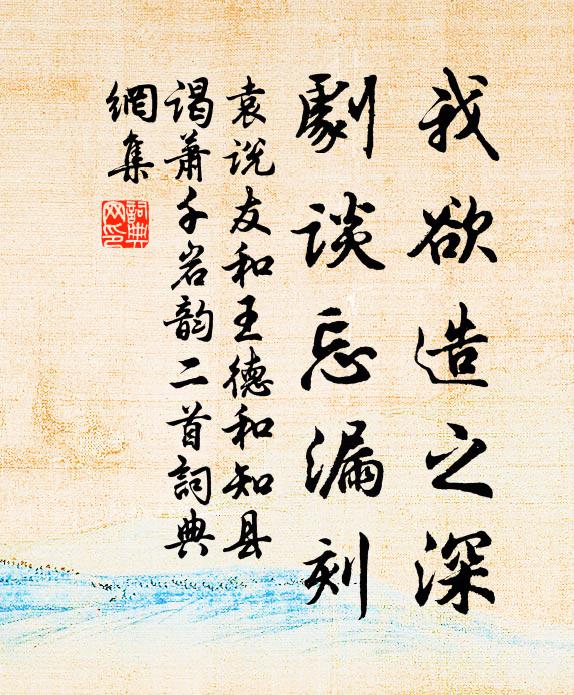 我欲造之深
劇谈忘漏刻
袁说友和王德和知县
谒蕭千岩韵二首詞典
網集
詞典網印